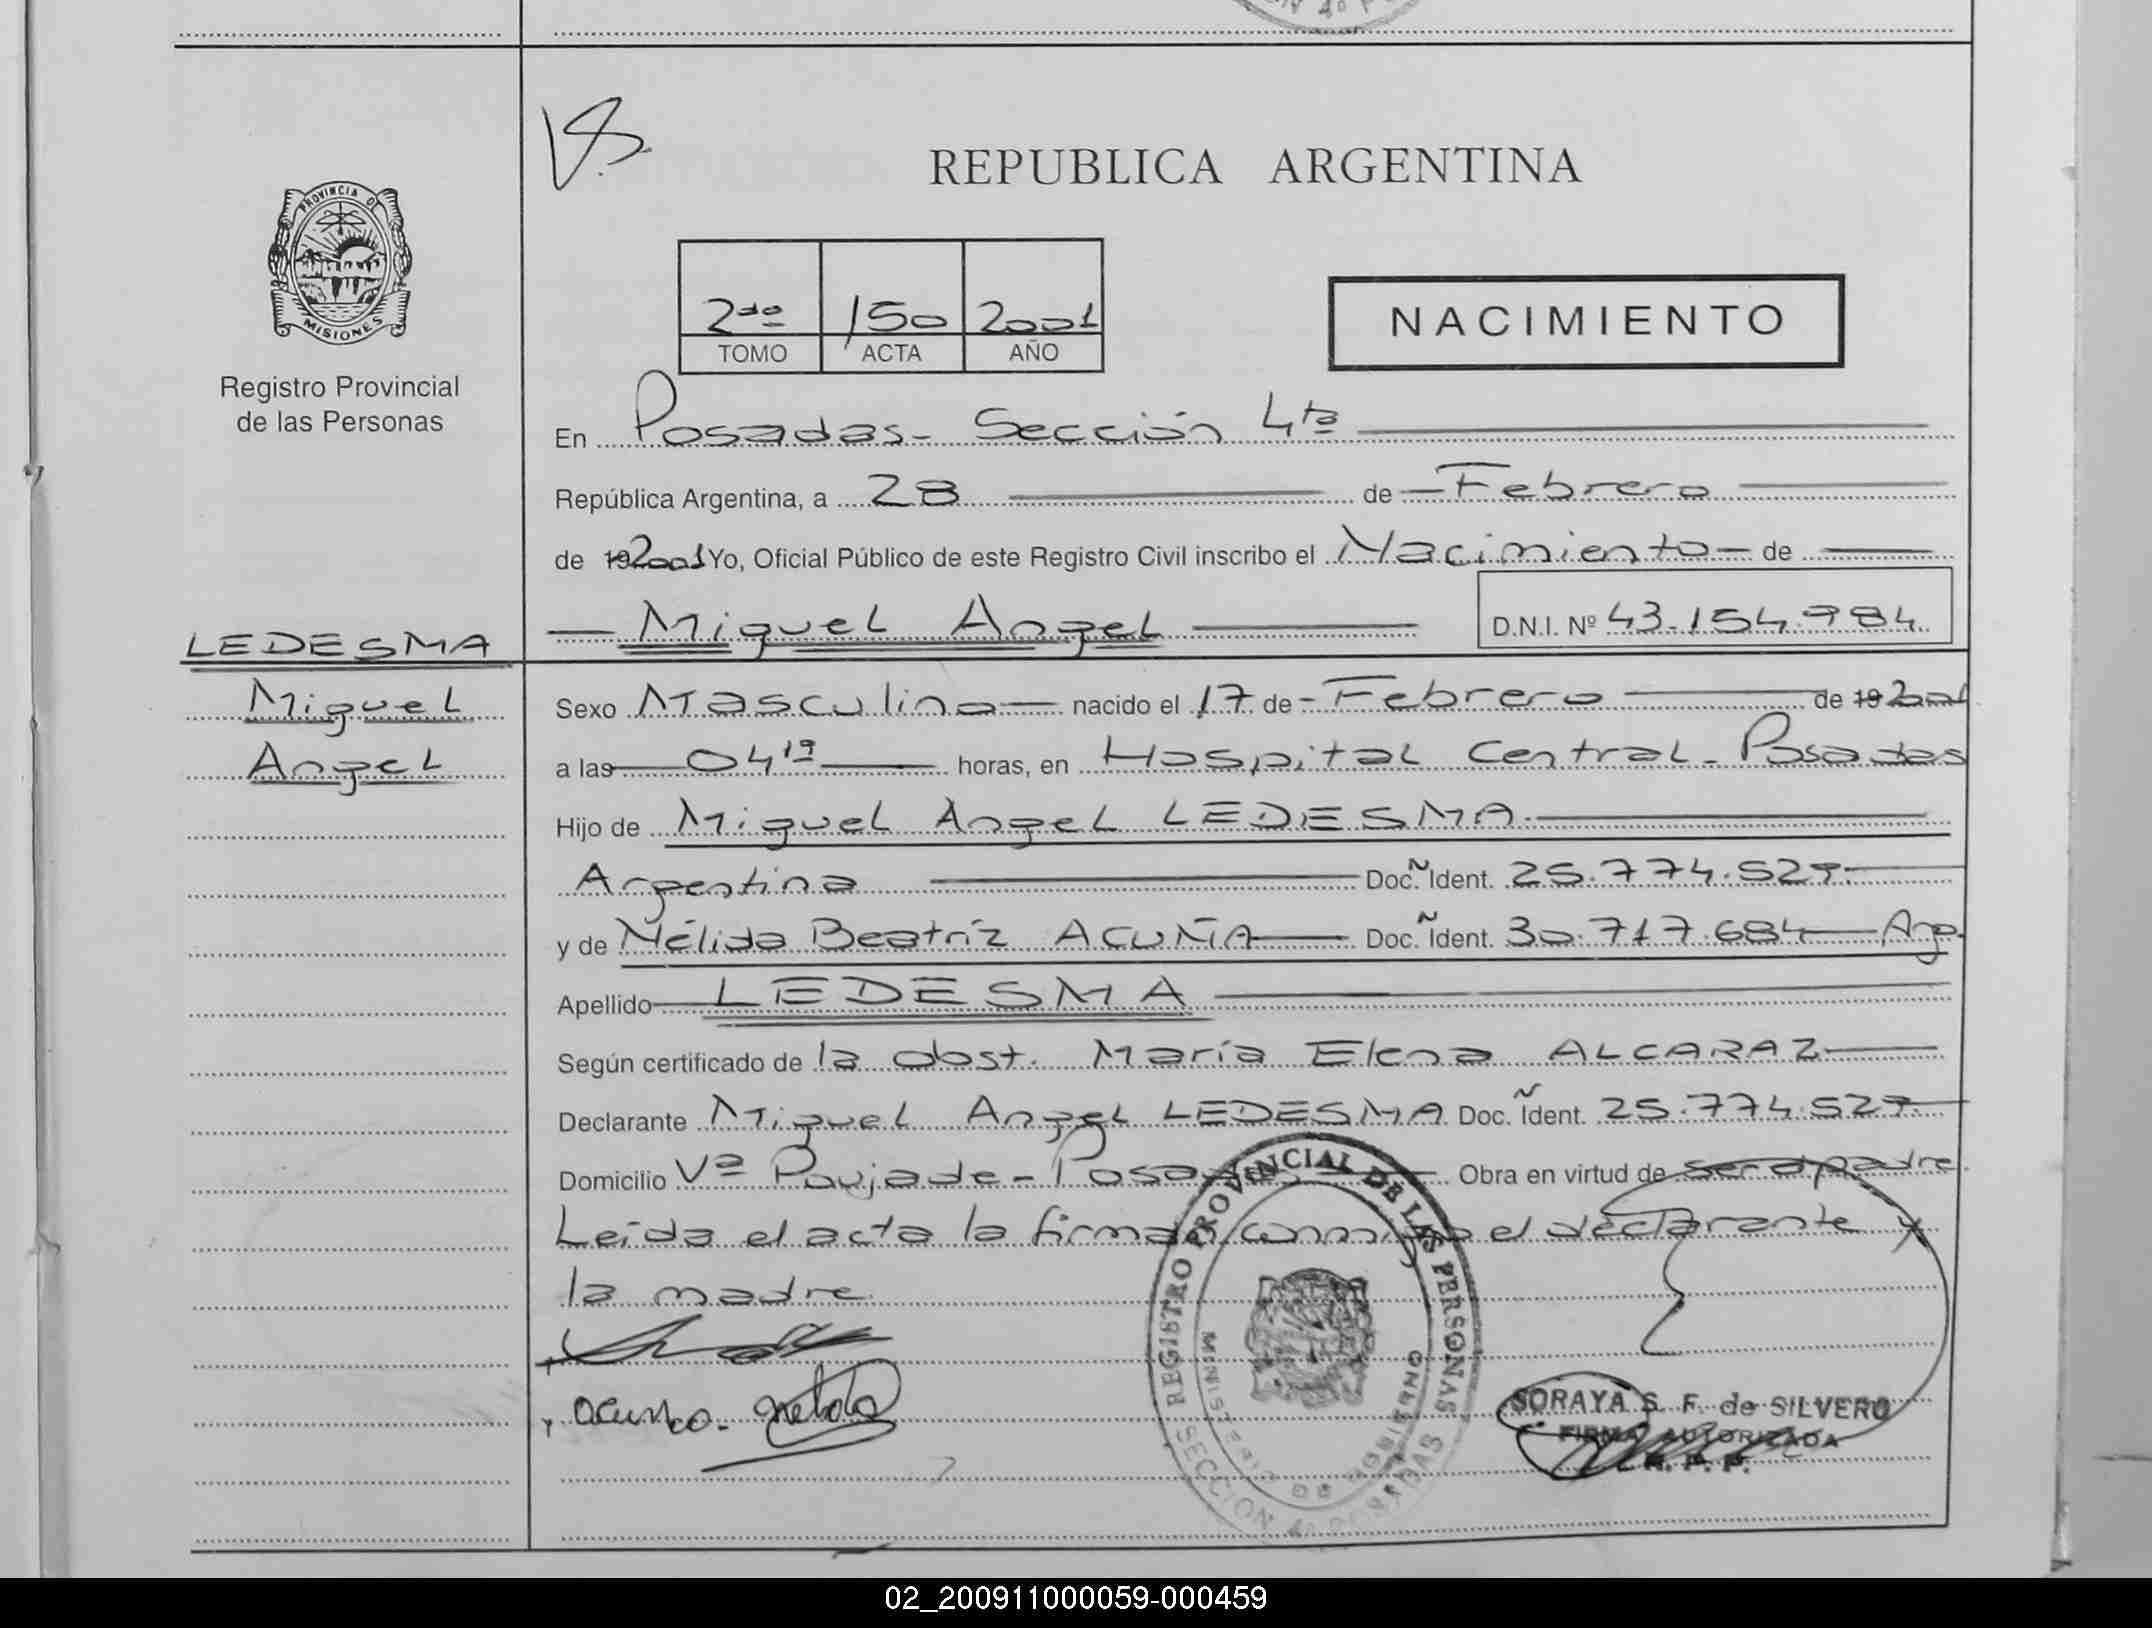 PROVINCIA DE
MISIONES
Registro Provincial
de las Personas
LEDESMA
Miguel
Angel
REPUBLICA ARGENTINA
2do 150 2001
TOMO ACTA AÑO
NACIMIENTO
En Posadas - Sección 4ta
República Argentina, a 28 de Febrero
de 19 2001 Yo, Oficial Público de este Registro Civil inscribo el Nacimiento de
Miguel Angel D.N.I. Nº 43.154.784
Sexo Masculino nacido el 17 de Febrero de 19 2001
a las 04 19 horas, en Hospital Central - Posadas
Hijo de Miguel Angel LEDESMA
Argentina Doc. Ident. 25.774.527
y de Nélida Beatríz ACUÑA Doc. Ident. 30.717.684 Arg.
Apellido LEDESMA
Según certificado de la obst. María Elena ALCARAZ
Declarante Miguel Angel LEDESMA Doc. Ident. 25.774.527
Domicilio Vª Poujade - Posadas Obra en virtud de ser el padre
Leída el acta la firman conmigo el declarante y
la madre
REGISTRO PROVINCIAL DE LAS PERSONAS
MINISTERIO DE GOBIERNO
SECCION 4º POSADAS
SORAYA S. F. de SILVERO
FIRMA AUTORIZADA
R. P. P.
02_200911000059-000459